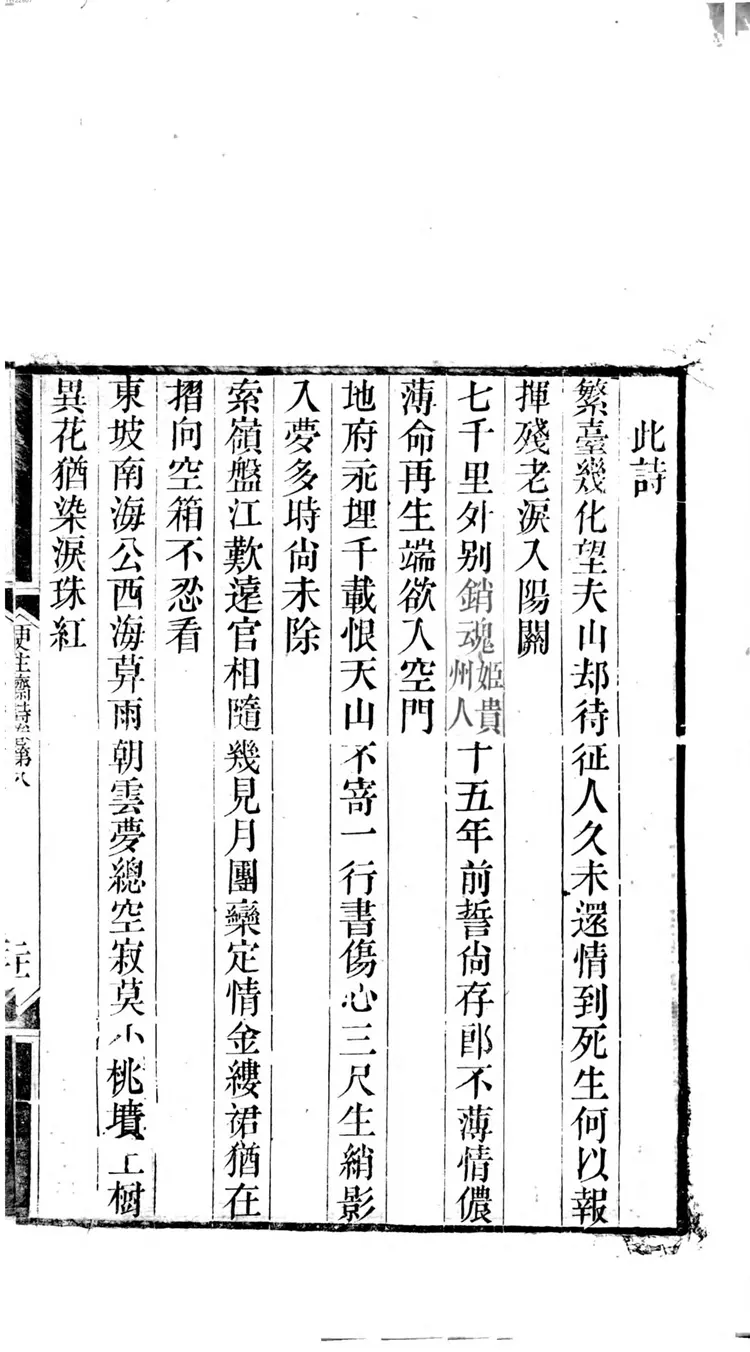 此詩
繁臺幾化望夫山却待征人久未還情到死生何以報
揮殘老淚入陽關
七千里外别銷魂姬貴州人十五年前誓尙存郎不薄情儂
薄命再生端欲入空門
地府永埋千載恨天山不寄一行書傷心三尺生綃影
入夢多時尙未除
索嶺盤江歎遠官相隨幾見月團欒定情金縷裙猶在
摺向空箱不忍看
東坡南海公西海莽雨朝雲夢總空寂莫小桃墳上樹
異花猶染淚珠紅
更生齋詩卷第八